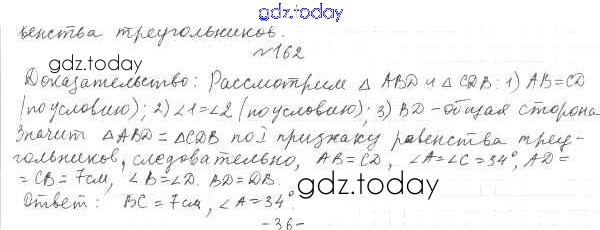 gdz.today
венства треугольников.
gdz.today
№162
Доказательство: Рассмотрим △ ABD и △ CDB: 1) AB=CD
(по условию); 2) ∠1=∠2 (по условию); 3) BD-общая сторона
Значит △ABD = △CDB по I признаку равенства треу-
гольников, следовательно, AB=CD, ∠A=∠C=34°, AD=
=CB=7см, ∠B=∠D. BD=DB.
gdz.today
Ответ: BC=7см, ∠A=34°.
-36-
gdz.today